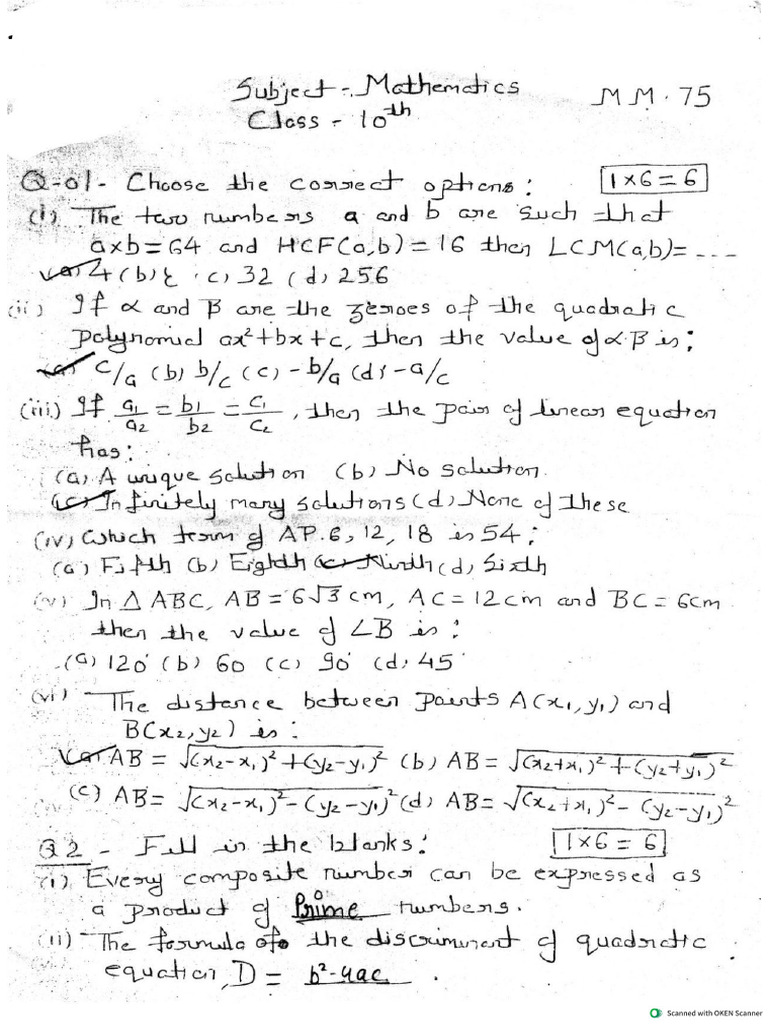 Subject - Mathematics
MM. 75
Class - 10th
Q-01- Choose the correct options: 1×6=6
(i) The two numbers a and b are such that
a×b=64 and HCF(a,b)=16 then LCM(a,b)= ---
(a) 4 (b) 8 (c) 32 (d) 256
(ii) If α and β are the zeroes of the quadratic
polynomial ax²+bx+c, then the value of α.β is:
(a) c/a (b) b/c (c) -b/a (d) -a/c
(iii) If a1/a2 = b1/b2 = c1/c2, then the pair of linear equation
has:
(a) A unique solution (b) No solution.
(c) Infinitely many solutions (d) None of these
(iv) Which term of AP. 6, 12, 18 is 54:
(a) Fifth (b) Eighth (c) Ninth (d) Sixth
(v) In △ ABC, AB = 6√3 cm, AC = 12cm and BC = 6cm
then the value of ∠B is:
(a) 120° (b) 60 (c) 90° (d) 45°
(vi) The distance between points A(x1, y1) and
B(x2, y2) is:
(a) AB = √(x2-x1)²+(y2-y1)² (b) AB = √(x2+x1)²+(y2+y1)²
(c) AB = √(x2-x1)²-(y2-y1)² (d) AB = √(x2+x1)²-(y2-y1)²
Q2 - Fill in the blanks: 1×6=6
(i) Every composite number can be expressed as
a product of Prime numbers.
(ii) The formula of the discriminent of quadratic
equation, D = b²-4ac.
Scanned with OKEN Scanner